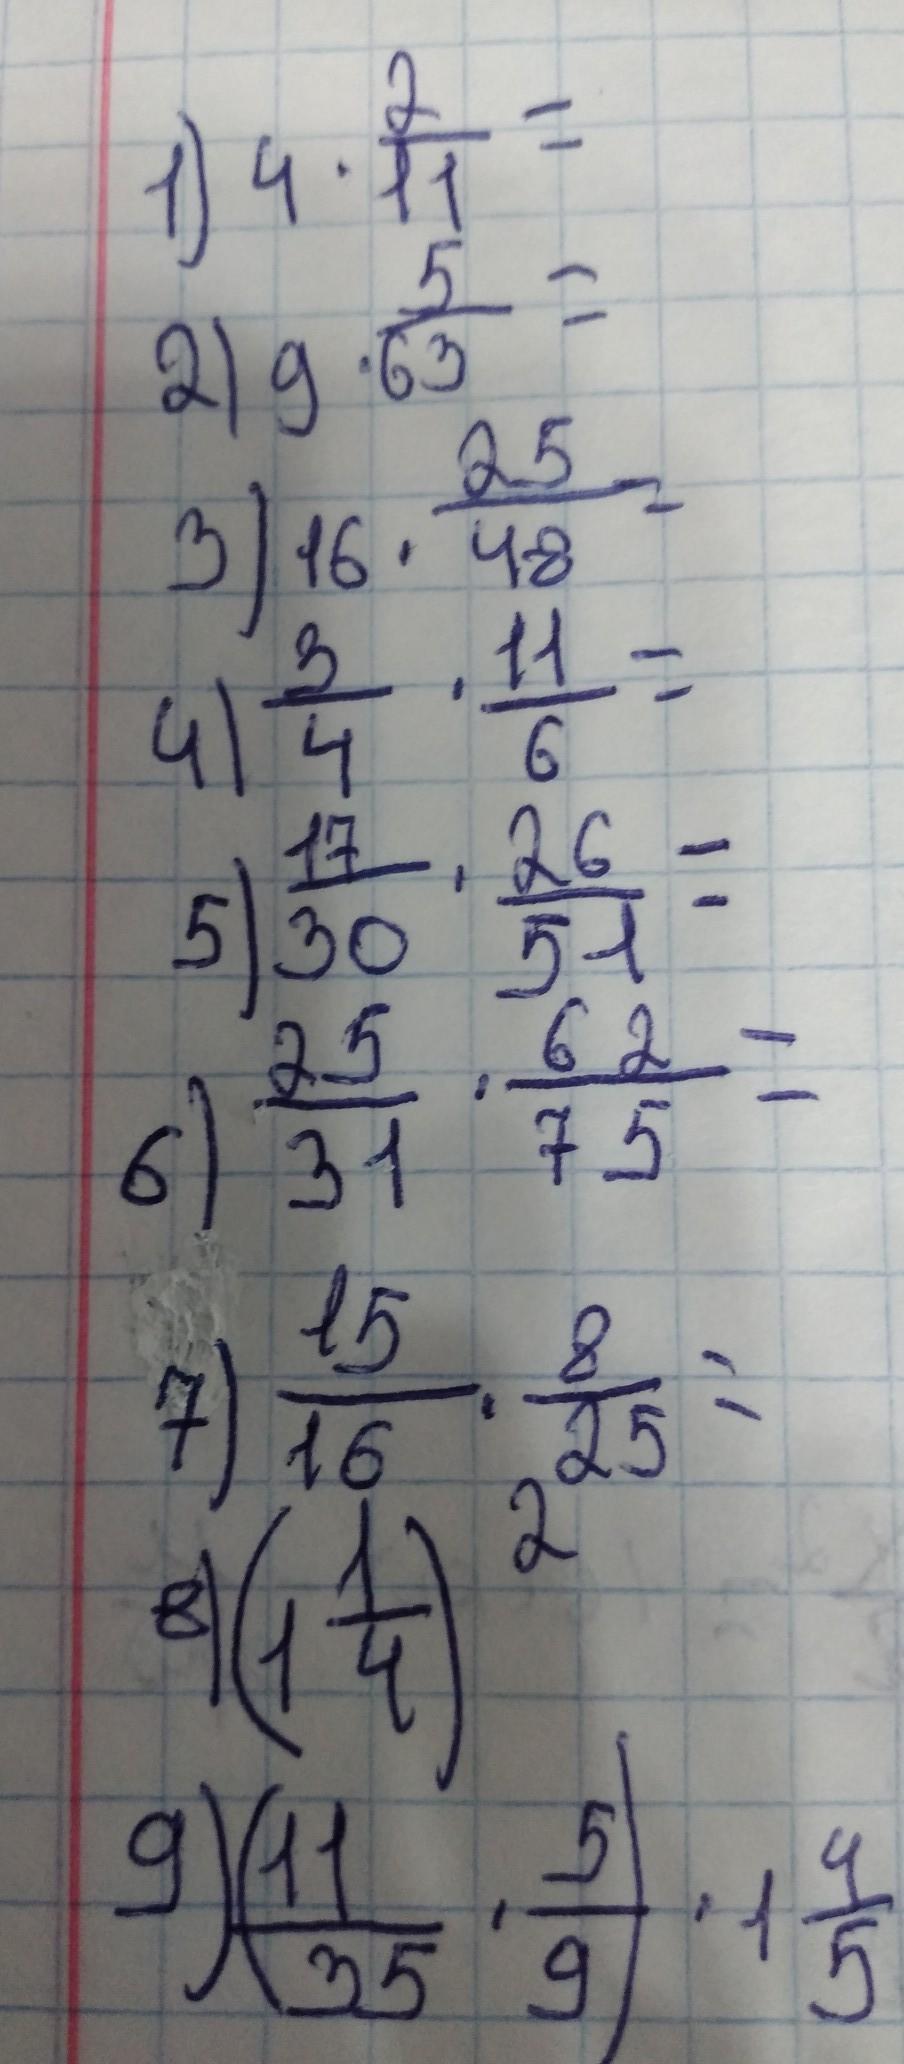 1) 4 · 2/11 =
2) 9 · 5/63 =
3) 16 · 25/48 =
4) 3/4 · 11/6 =
5) 17/30 · 26/51 =
6) 25/31 · 62/75 =
7) 15/16 · 8/25 =
8) (1 1/4)²
9) (11/35 · 5/9) · 1 4/5